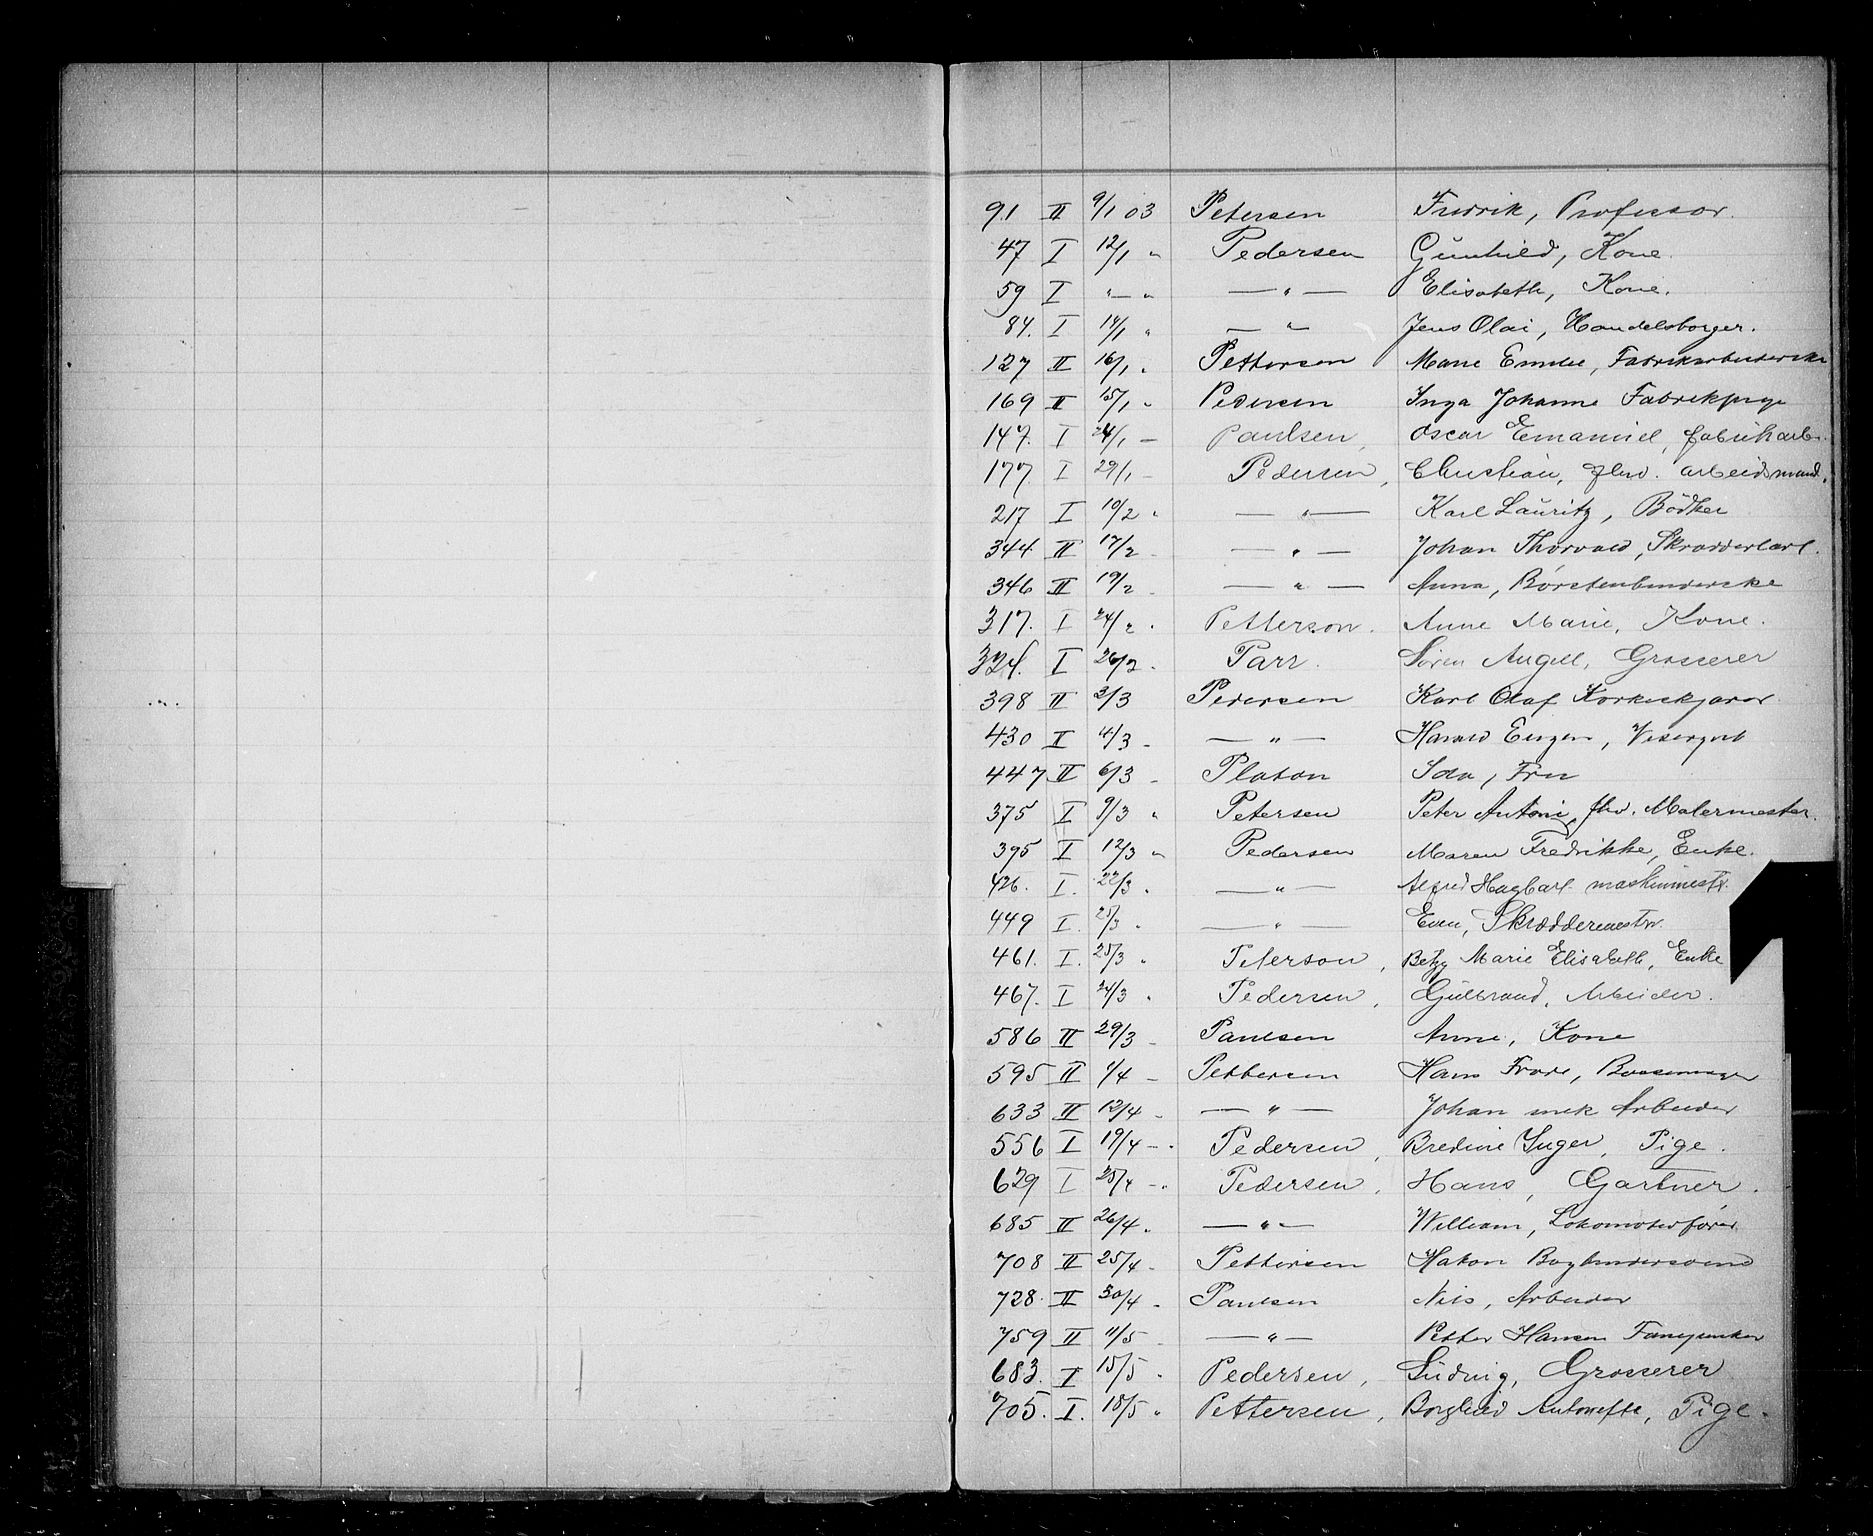 91 II 9/1 03 Petersen Fredrik, Professor.
47 I 12/1 " Pedersen Gunhild, Kone.
59 I "—" —"— Elisabeth, Kone.
84. I 14/1 " —"— Jens Olai, Handelsborger.
127 II 16/1 " Pettersen Marie Emilie, Fabrikarbeiderske
169 II 15/1 " Pedersen Inga Johanne Fabrikpige
147. I 24/1 — Paulsen, Oscar Emanuel, fabrikarb.
177. I 29/1 — Pedersen, Christian, fhv. arbeidsmand.
217 I 10/2 " —"— Karl Lauritz, Bödker
344 II 17/2 - —"— Johan Thorvald, Skrædderlærl.
346 II 19/2 - —"— Anna, Børstenbinderske
317. I 24/2 . Petterson. Anne Marie, Kone.
324. I 26/2 - Parr. Søren Angell, Grosserer
398 II 2/3 Pedersen Karl Olaf Korkeskjærer
430 II 4/3 - —"— Harald Eugen, Visergut
447 II 6/3 - Platon Ida, Fru
375 I 9/3 " Petersen Peter Antoni, fhv. Malermester.
395 I 12/3 " Pedersen Maren Fredrikke, Enke.
426. I. 22/3 . —"— Alfred Hagbart maskinmestr.
449 I. 25/3 . —"— Even, Skræddermestr.
461. I. 25/3 " Peterson, Betzy Marie Elisabeth, Enke
467. I 24/3 " Pedersen, Gulbrand, Arbeider.
586 II 29/3 - Paulsen Anne, Kone
595 II 1/4 - Pettersen Hans
633 II 12/4 - —"— Johan mek Arbeider
556 I 19/4 -. Pedersen, Bredine Inger, Pige.
629 I 25/4 -. Pedersen, Hans, Gartner.
685 II 26/4 . —"— William, Lokomotivfører
708 II 25/4 - Pettersen Hakon Bogbindersvend
728. II 30/4 - Paulsen Nils, Arbeider
759 II 11/5 - —"— Petter Hansen
683. I 15/5 . Pedersen, Ludvig, Grosserer
705. I. 18/5 " Pettersen, Borghild Antonette, Pige.